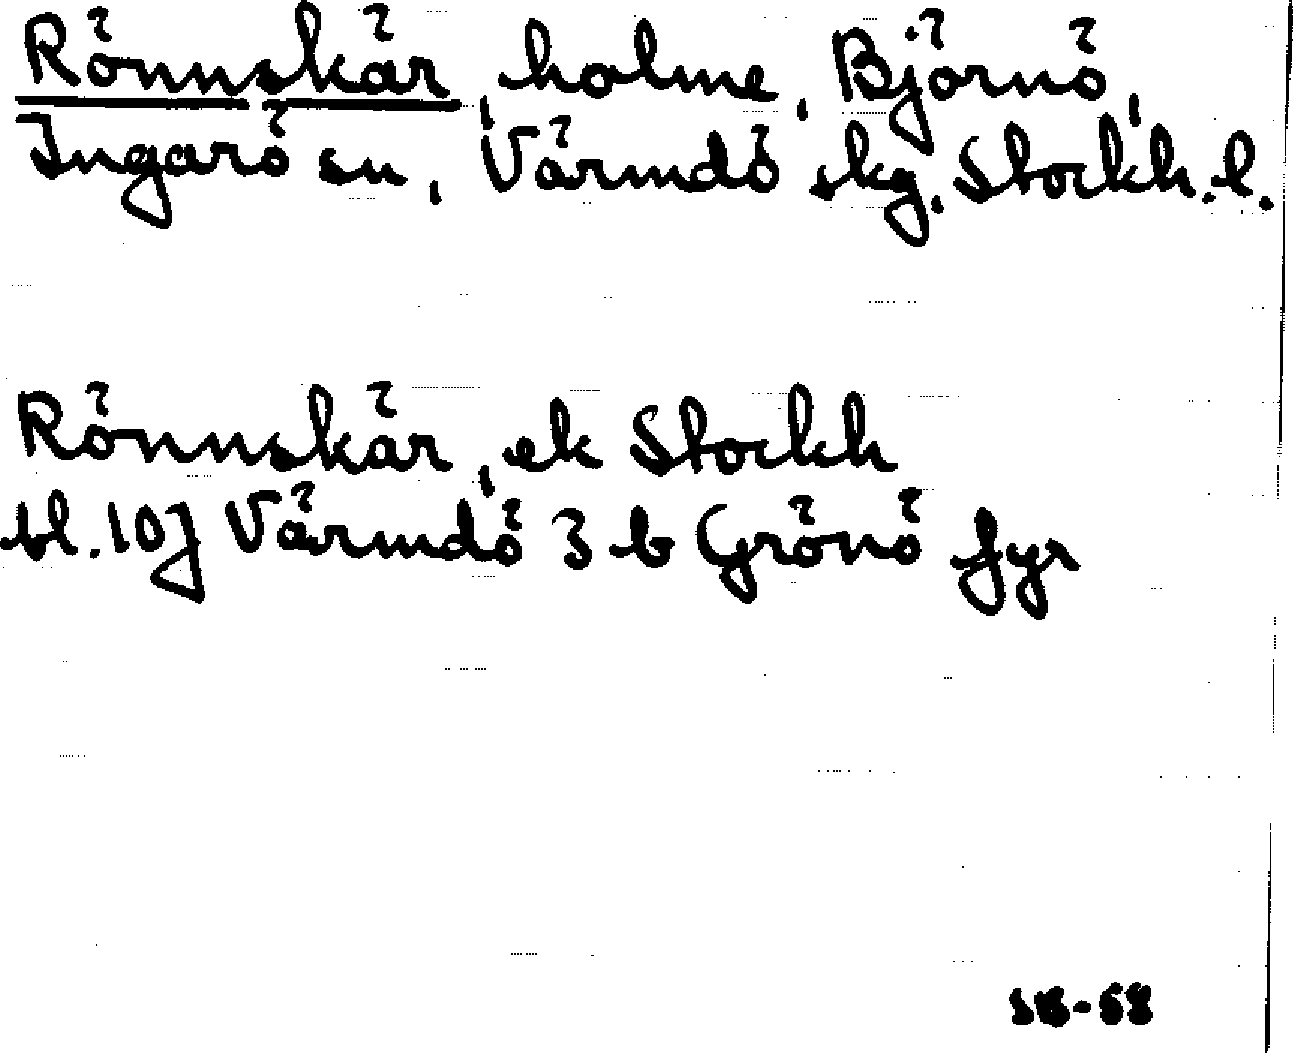 Rönnskär, holme, Björnö,
Ingarö sn, Värmdö skg. Stockh. l.
Rönnskär, ek Stockh
bl. 10J Värmdö 3 b Grönö fyr